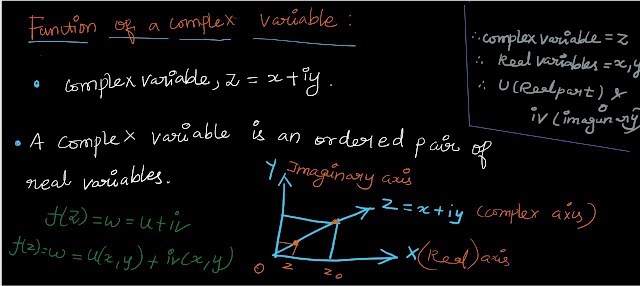 Function of a complex variable:
• complex variable, z = x+iy.
• A complex variable is an ordered pair of
real variables.
f(z)=w=u+iv
f(z)=w=u(x,y)+iv(x,y)
∴ complex variable = z
∴ Real variables = x,y
∴ U(Real part) &
iv(imaginary)
Y Imaginary axis
z=x+iy (complex axis)
X(Real)axis
O z z₀